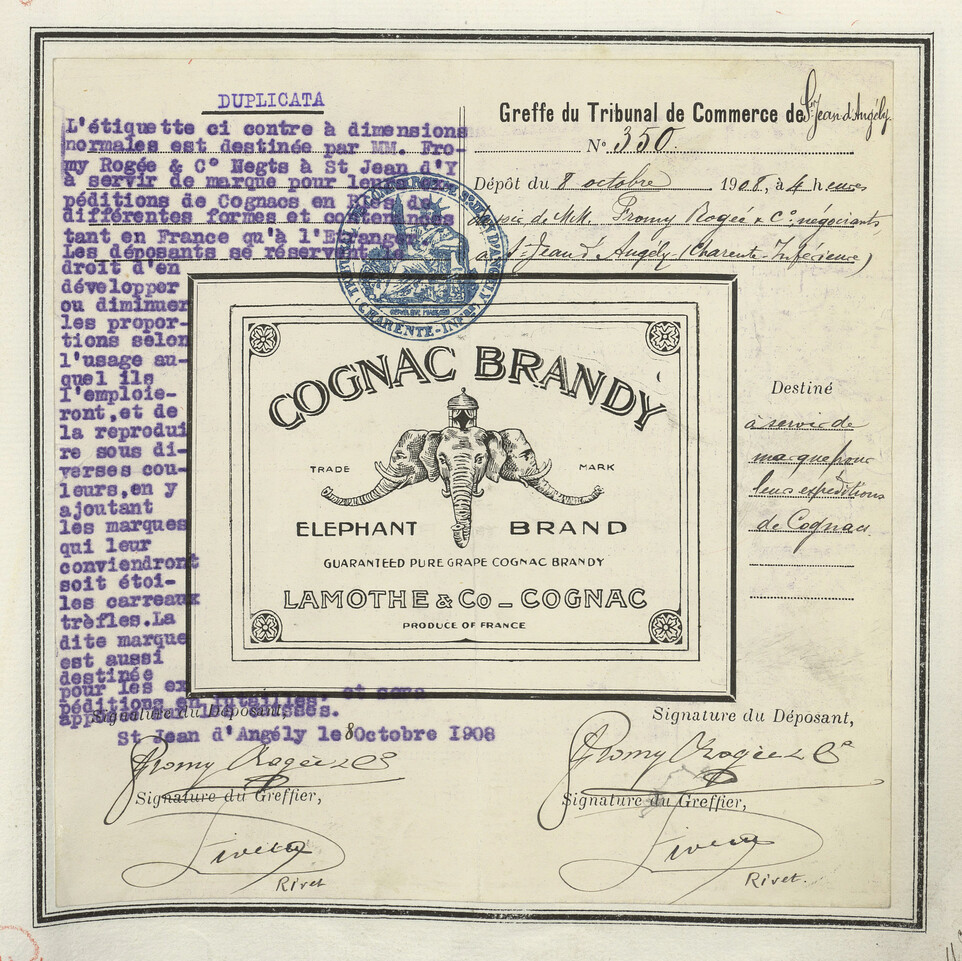 DUPLICATA
L'étiquette ci contre à dimensions
normales est destinée par MM. Fro-
my Rogée & C° Negts à St Jean d'Y
à servir de marque pour leurs ex-
péditions de Cognacs en
différentes formes et contenances
tant en France qu'à l'Etranger
Les déposants se réservent le
droit d'en
développer
ou diminuer
les propor-
tions selon
l'usage au-
quel ils
l'emploie-
ront,et de
la reprodui
re sous di-
verses cou-
leurs,en y
ajoutant
les marques
qui leur
conviendront
soit étoi-
les carreaux
trèfles.La
dite marque
est aussi
destinée
pour les ex
péditions en
St Jean d'Angély le 8 Octobre 1908
Signature du Déposant,
Fromy Rogée & Cie
Signature du Greffier,
Rivet
Rivet
Greffe du Tribunal de Commerce de St Jean d'Angély
N° 350.
Dépôt du 8 octobre 1908, à 4 heures
de MM. Fromy Rogée & Cie négociants
à St Jean d'Angély (Charente-Inférieure)
CHARENTE-INFRE
COGNAC BRANDY
TRADE MARK
ELEPHANT BRAND
GUARANTEED PURE GRAPE COGNAC BRANDY
LAMOTHE & Co - COGNAC
PRODUCE OF FRANCE
Destiné
à servir de
marque pour
leurs expéditions
de Cognacs
Signature du Déposant,
Fromy Rogée & Cie
Signature du Greffier,
Rivet
Rivet.